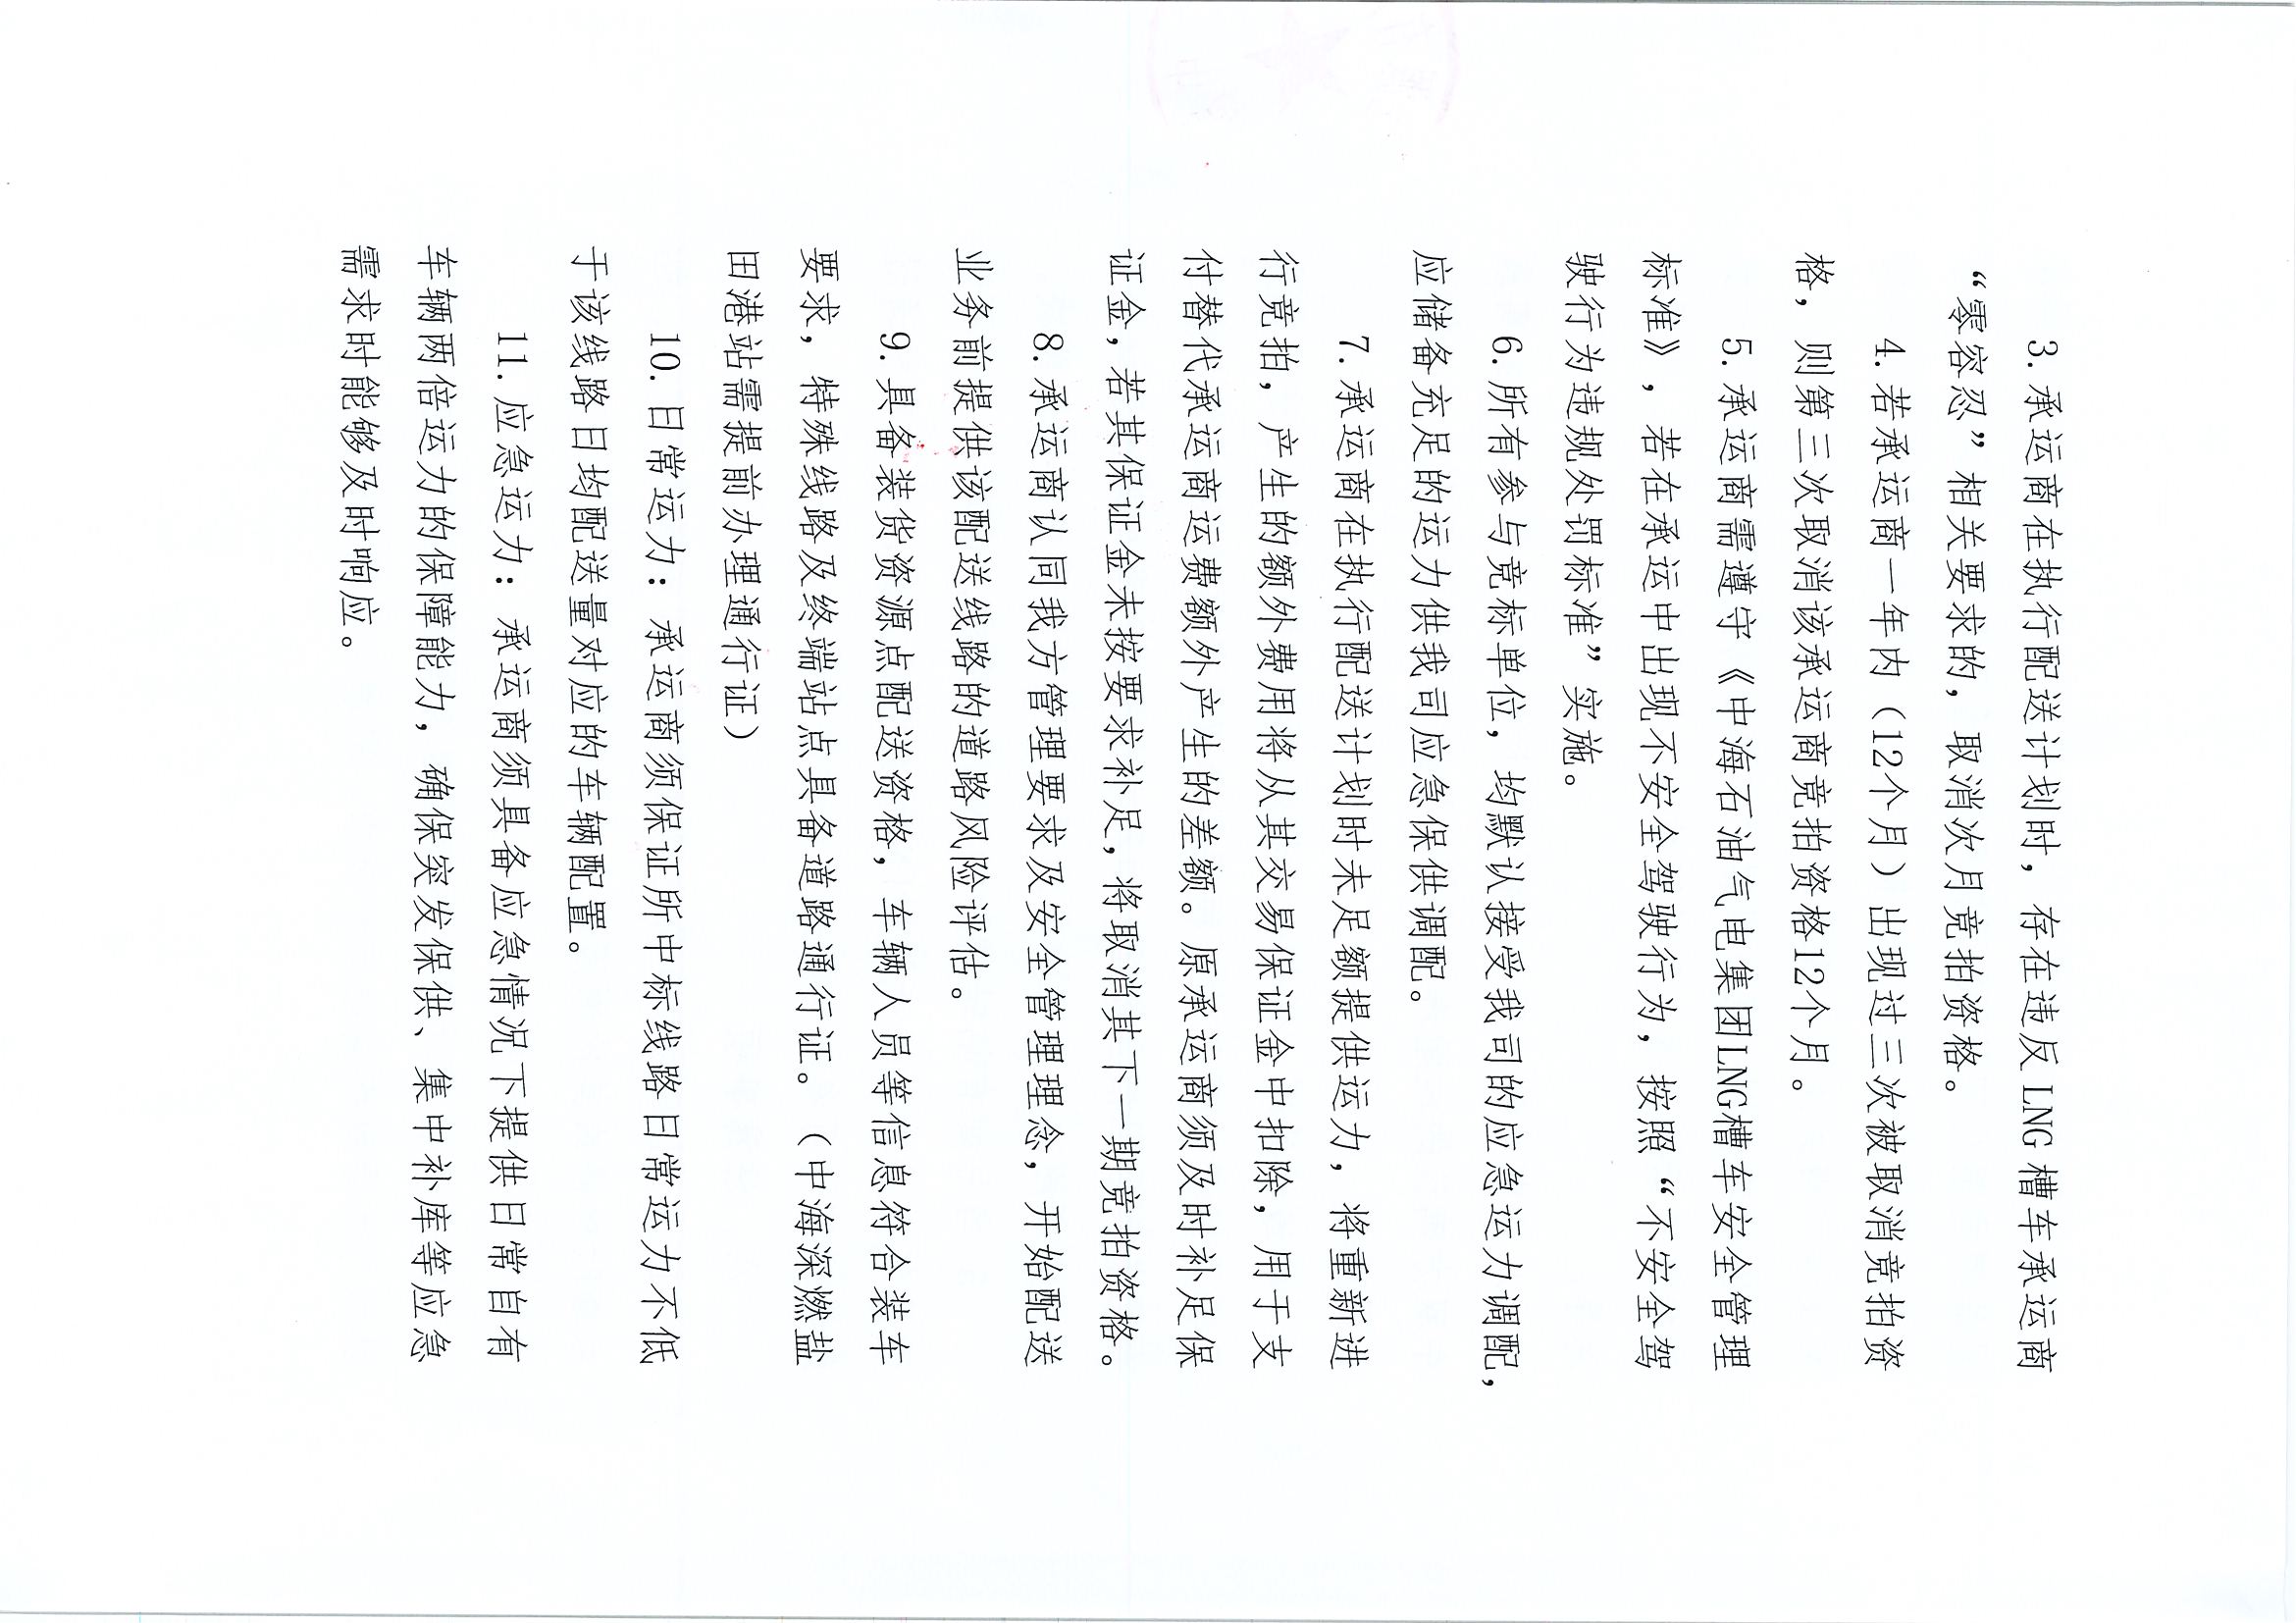 3.承运商在执行配送计划时，存在违反LNG槽车承运商
“零容忍”相关要求的，取消次月竞拍资格。
4.若承运商一年内（12个月）出现过三次被取消竞拍资
格，则第三次取消该承运商竞拍资格12个月。
5.承运商需遵守《中海石油气电集团LNG槽车安全管理
标准》，若在承运中出现不安全驾驶行为，按照“不安全驾
驶行为违规处罚标准”实施。
6.所有参与竞标单位，均默认接受我司的应急运力调配，
应储备充足的运力供我司应急保供调配。
7.承运商在执行配送计划时未足额提供运力，将重新进
行竞拍，产生的额外费用将从其交易保证金中扣除，用于支
付替代承运商运费额外产生的差额。原承运商须及时补足保
证金，若其保证金未按要求补足，将取消其下一期竞拍资格。
8.承运商认同我方管理要求及安全管理理念，开始配送
业务前提供该配送线路的道路风险评估。
9.具备装货资源点配送资格，车辆人员等信息符合装车
要求，特殊线路及终端站点具备道路通行证。（中海深燃盐
田港站需提前办理通行证）
10.日常运力：承运商须保证所中标线路日常运力不低
于该线路日均配送量对应的车辆配置。
11.应急运力：承运商须具备应急情况下提供日常自有
车辆两倍运力的保障能力，确保突发保供、集中补库等应急
需求时能够及时响应。